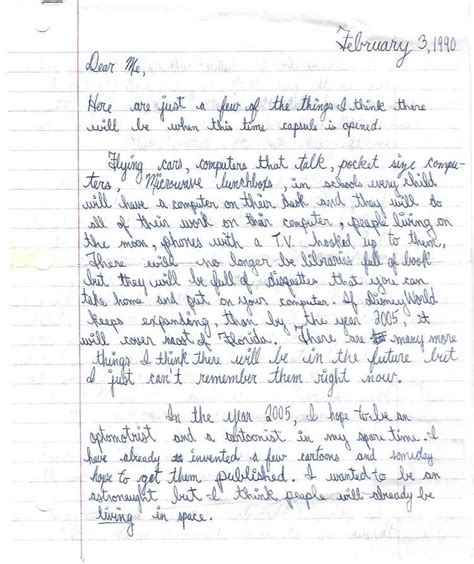 February 3, 1990
Dear Me,
Here are just a few of the things I think there
will be when this time capsule is opened.
Flying cars, computers that talk, pocket size compu-
ters, Microwave lunchboxs, in schools every child
will have a computer on their desk and they will do
all of their work on their computer, people living on
the moon, phones with a T.V. hooked up to them,
There will no longer be libraries full of book
but they will be full of disquettes that you can
take home and put on your computer. If disneyWorld
keeps expanding, then by the year 2005, it
will cover most of Florida. There are many more
things I think there will be in the future but
I just can't remember them right now.
In the year 2005, I hope to be an
optomotrist and a cartoonist in my spare time. I
have already invented a few cartoons and someday
hope to get them published. I wanted to be an
astronaught but I think people will already be
living in space.